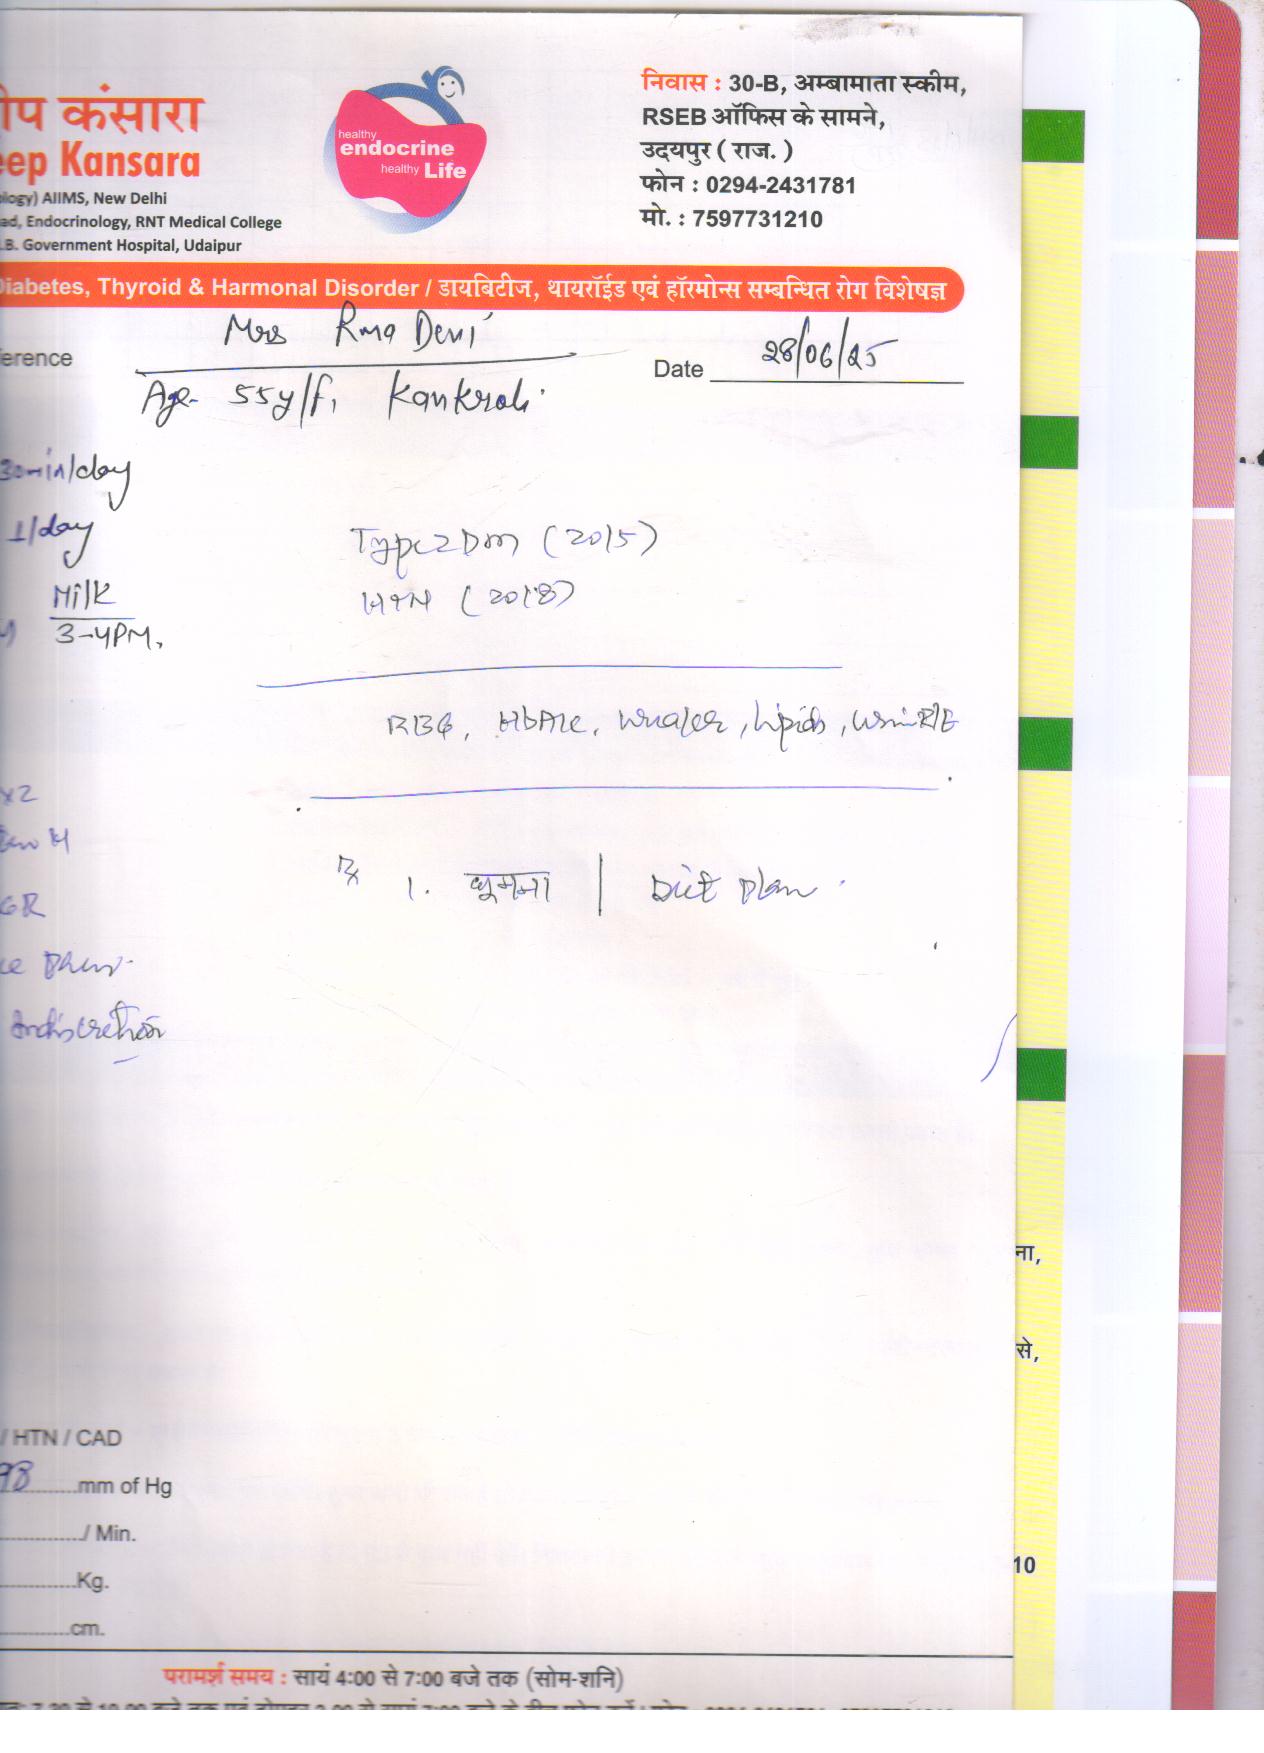 कंसारा
Kansara
healthy
endocrine
healthy Life
AIIMS, New Delhi
Endocrinology, RNT Medical College
Government Hospital, Udaipur
निवास : 30-B, अम्बामाता स्कीम,
RSEB ऑफिस के सामने,
उदयपुर ( राज. )
फोन : 0294-2431781
मो. : 7597731210
Diabetes, Thyroid & Harmonal Disorder / डायबिटीज, थायरॉईड एवं हॉरमोन्स सम्बन्धित रोग विशेषज्ञ
Mrs Devi
Date 28/06/25
Age- 55y/f, Kankroli
30min/day
1/day
Milk
3-4PM.
Type2Dm (2015)
HTN (2018)
RBG, HbA1c, lipids,
x2
GR
Indiscretion
Rx 1. घूमना | Diet Plan
/ HTN / CAD
98 mm of Hg
/ Min.
Kg.
cm.
ना,
से,
10
परामर्श समय : सायं 4:00 से 7:00 बजे तक (सोम-शनि)